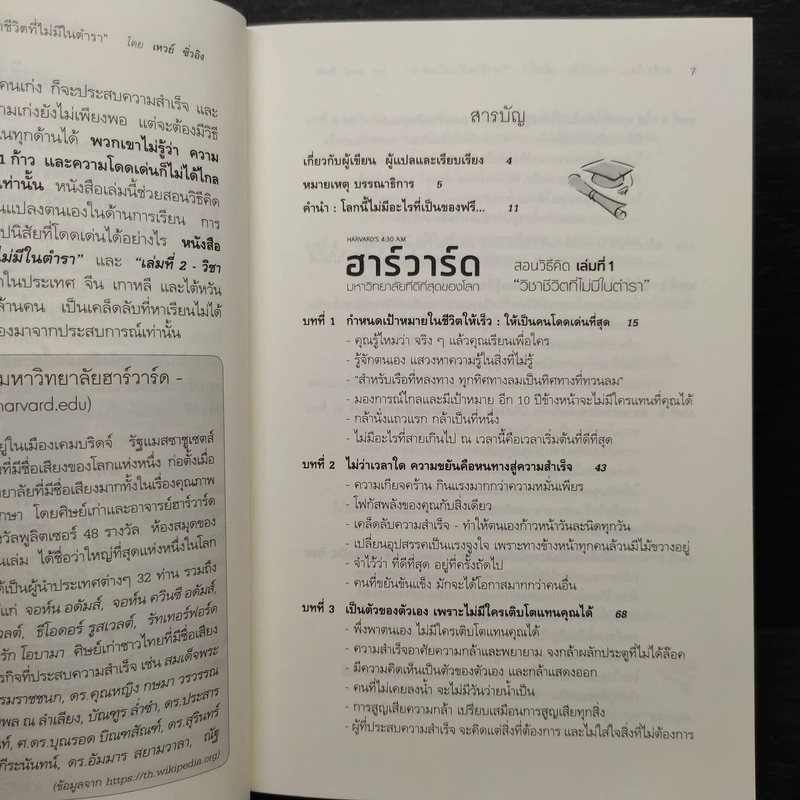 ชีวิตที่ไม่มีในตำรา" โดย เหวย์ ซิ่วอิง
คนเก่ง ก็จะประสบความสำเร็จ และ
ามเก่งยังไม่เพียงพอ แต่จะต้องมีวิธี
นทุกด้านได้ พวกเขาไม่รู้ว่า ความ
1 ก้าว และความโดดเด่นก็ไม่ได้ไกล
เท่านั้น หนังสือเล่มนี้ช่วยสอนวิธีคิด
นแปลงตนเองในด้านการเรียน การ
ปนิสัยที่โดดเด่นได้อย่างไร หนังสือ
ไม่มีในตำรา" และ "เล่มที่ 2 - วิชา
กในประเทศ จีน เกาหลี และไต้หวัน
ล้านคน เป็นเคล็ดลับที่หาเรียนไม่ได้
องมาจากประสบการณ์เท่านั้น
มหาวิทยาลัยฮาร์วาร์ด -
harvard.edu)
ยู่ในเมืองเคมบริดจ์ รัฐแมสซาชูเซตส์
ที่มีชื่อเสียงของโลกแห่งหนึ่ง ก่อตั้งเมื่อ
ยาลัยที่มีชื่อเสียงมากทั้งในเรื่องคุณภาพ
กษา โดยศิษย์เก่าและอาจารย์ฮาร์วาร์ด
งวัลพูลิตเซอร์ 48 รางวัล ห้องสมุดของ
นเล่ม ได้ชื่อว่าใหญ่ที่สุดแห่งหนึ่งในโลก
ด้เป็นผู้นำประเทศต่างๆ 32 ท่าน รวมถึง
แก่ จอห์น อดัมส์, จอห์น ควินซี อดัมส์,
วลต์, ธีโอดอร์ รูสเวลต์, รัทเทอร์ฟอร์ด
รัก โอบามา ศิษย์เก่าชาวไทยที่มีชื่อเสียง
รกิจที่ประสบความสำเร็จ เช่น สมเด็จพระ
รมราชชนก, ดร.คุณหญิง กษมา วรวรรณ
พล ณ ลำเลียง, บัณฑูร ล่ำซำ, ดร.ประสาร
ท์, ศ.ดร.บุณรอด บิณฑสัณฑ์, ดร.สุรินทร์
กีระนันทน์, ดร.อัมมาร สยามวาลา, ณัฐ
(ข้อมูลจาก https://th.wikipedia.org)
7
สารบัญ
เกี่ยวกับผู้เขียน ผู้แปลและเรียบเรียง 4
หมายเหตุ บรรณาธิการ 5
คำนำ : โลกนี้ไม่มีอะไรที่เป็นของฟรี... 11
HARVARD'S 4:30 A.M.
ฮาร์วาร์ด สอนวิธีคิด เล่มที่ 1
มหาวิทยาลัยที่ดีที่สุดของโลก "วิชาชีวิตที่ไม่มีในตำรา"
บทที่ 1 กำหนดเป้าหมายในชีวิตให้เร็ว : ให้เป็นคนโดดเด่นที่สุด 15
- คุณรู้ไหมว่า จริง ๆ แล้วคุณเรียนเพื่อใคร
- รู้จักตนเอง แสวงหาความรู้ในสิ่งที่ไม่รู้
- "สำหรับเรือที่หลงทาง ทุกทิศทางลมเป็นทิศทางที่ทวนลม"
- มองการณ์ไกลและมีเป้าหมาย อีก 10 ปีข้างหน้าจะไม่มีใครแทนที่คุณได้
- กล้านั่งแถวแรก กล้าเป็นที่หนึ่ง
- ไม่มีอะไรที่สายเกินไป ณ เวลานี้คือเวลาเริ่มต้นที่ดีที่สุด
บทที่ 2 ไม่ว่าเวลาใด ความขยันคือหนทางสู่ความสำเร็จ 43
- ความเกียจคร้าน กินแรงมากกว่าความหมั่นเพียร
- โฟกัสพลังของคุณกับสิ่งเดียว
- เคล็ดลับความสำเร็จ - ทำให้ตนเองก้าวหน้าวันละนิดทุกวัน
- เปลี่ยนอุปสรรคเป็นแรงจูงใจ เพราะทางข้างหน้าทุกคนล้วนมีไม้ขวางอยู่
- จำไว้ว่า ที่ดีที่สุด อยู่ที่ครั้งถัดไป
- คนที่ขยันขันแข็ง มักจะได้โอกาสมากกว่าคนอื่น
บทที่ 3 เป็นตัวของตัวเอง เพราะไม่มีใครเติบโตแทนคุณได้ 68
- พึ่งพาตนเอง ไม่มีใครเติบโตแทนคุณได้
- ความสำเร็จอาศัยความกล้าและพยายาม จงกล้าผลักประตูที่ไม่ได้ล๊อค
- มีความคิดเห็นเป็นตัวของตัวเอง และกล้าแสดงออก
- คนที่ไม่เคยลงน้ำ จะไม่มีวันว่ายน้ำเป็น
- การสูญเสียความกล้า เปรียบเสมือนการสูญเสียทุกสิ่ง
- ผู้ที่ประสบความสำเร็จ จะคิดแต่สิ่งที่ต้องการ และไม่ใส่ใจสิ่งที่ไม่ต้องการ